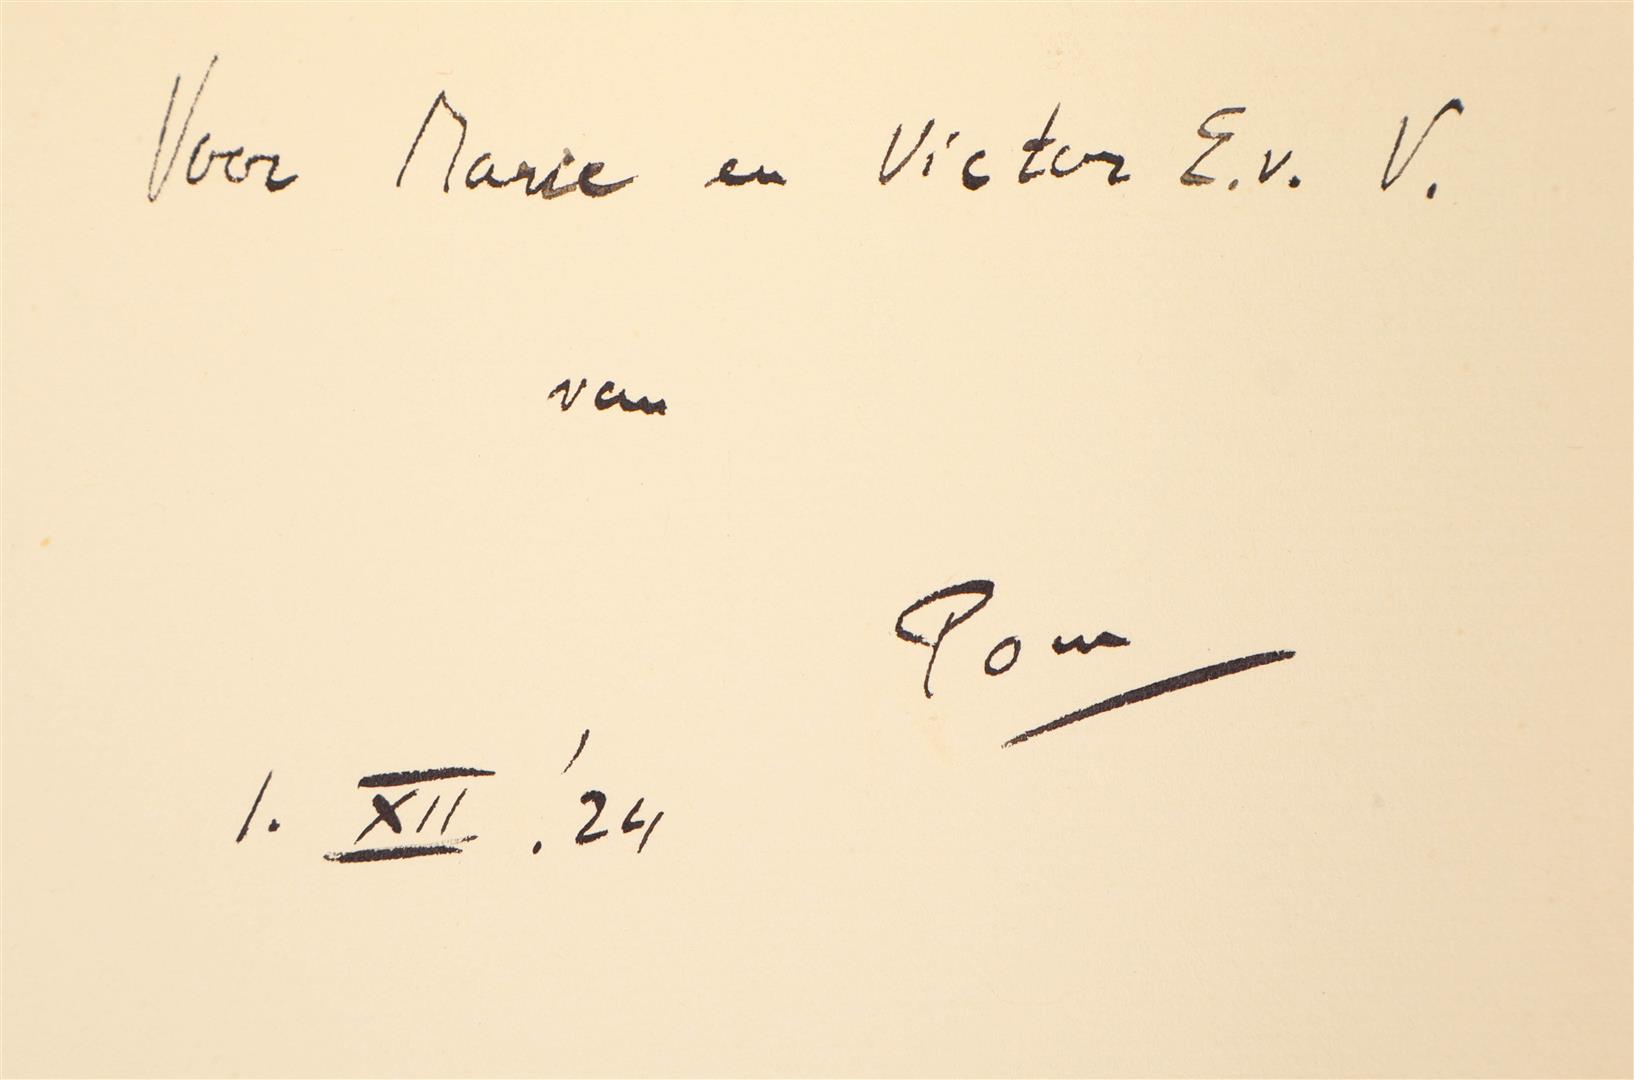 Voor Marie en Victor E.v. V.
van
Pom
1. XII. '24